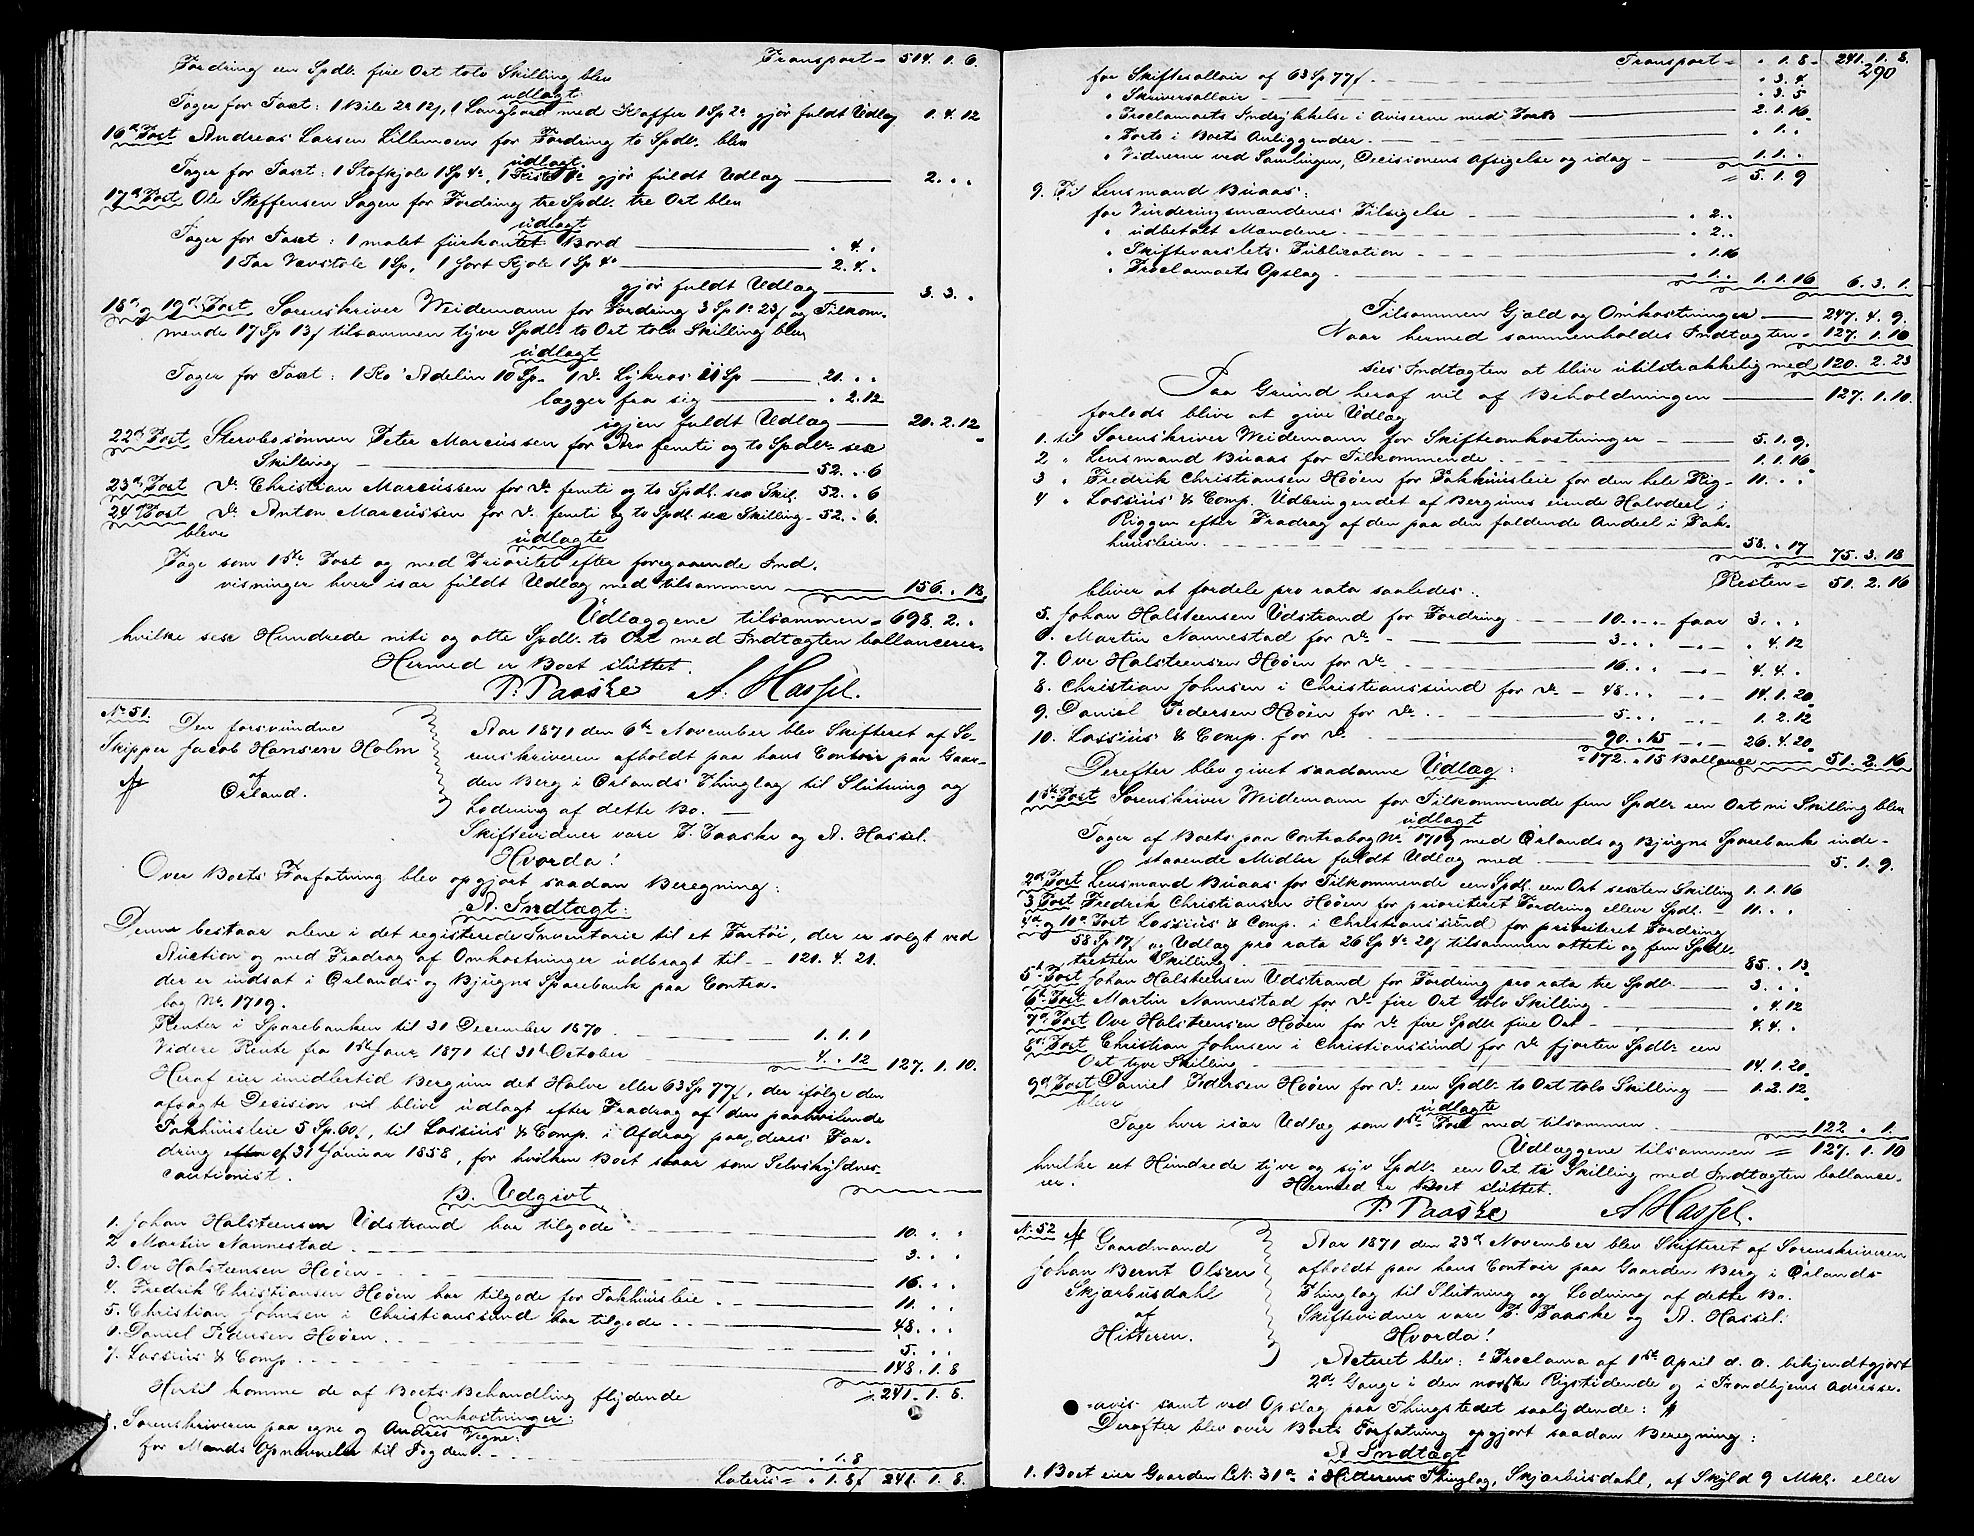 Transport = 514. 1. 6.
Fordring een Spdlr. fire Ort tolv Skilling blev
udlagt
Tager for Taxt: 1 Bile 2# 12/, 1 Langbord med Skuffer 1 Sp 2# gjør fuldt Udlæg 1. 4. 12
16de Post Andreas Larsen Lillemoen for Fordring to Spdlr. blev
udlagt.
Tager for Taxt: 1 Stofkjole 1 Sp 4#, 1 Kiste 1# gjør fuldt Udlæg 2. " "
17de Post Ole Steffensen Sagen for Fordring tre Spdlr. tre Ort blev
udlagt
Tager for Taxt: 1 malet fiirkantet Bord " 4. "
1 Par Vævstole 1 Sp, 1 sort Kjole 1 Sp 4# 2. 4. "
gjør fuldt Udlæg 3. 3. "
18de og 19de Post Sorenskriver Weidemann for Fordring 3 Sp 1# 23/ og Tilkom-
mende 17 Sp 13/ tilsammen tyve Spdlr. to Ort tolv Skilling blev
udlagt
Tager for Taxt: 1 Ko Adelin 10 Sp. 1 Do Lykros 11 Sp 21. " "
lægger fra sig " 2. 12
igjen fuldt Udlæg 20. 2. 12
22de Post Stervbosønnen Peter Marcussen for Arv femti og to Spdlr. sex
Skilling 52. " 6
23de Post Do Christian Marcussen for Do femti og to Spdl. sex Skil. 52. " 6
24de Post Do Anton Marcussen for Do femti og to Spdl. sex Skilling 52. " 6.
bleve udlagte
Tage som 1ste Post og med Prioritet efter foregaaende Ind-
visninger hver især fuldt Udlæg med tilsammen 156. " 18.
Udlæggene tilsammen = 698. 2. "
hvilke sex Hundrede niti og otte Spdlr. to Ort med Indtægten ballancerer.
Hermed er Boet sluttet.
P. Paaske A. Hassel.
No 51.
Den forsvundne
Skipper Jacob Hansen Holm
af
Ørland.
Aar 1871 den 6te November blev Skifteret af So-
renskriveren afholdt paa hans Contoir paa Gaar-
den Berg i Ørlands Thinglag til Slutning og
Lodning af dette Bo. —
Skiftevidner vare P. Paaske og A. Hassel.
Hvorda!
Over Boets Forfatning blev opgjort saadan Beregning:
A. Indtægt:
Denne bestaar alene i det registerede Inventarie til et Fartøi, der er solgt ved
Auction og med Fradrag af Omkostninger udbragt til — 121. 4. 21.
der er indsat i Ørlands og Bjugns Sparebank paa Contra-
bog No. 1719.
Renter i Sparebanken til 31 December 1870 1. 1. 1
Videre Rente fra 1ste Janr 1871 til 31te October 4. " 12 127. 1. 10.
Heraf eier imidlertid Bergum det Halve eller 63 Sp 77/, der ifølge den
afsagte Decision vil blive udlagt efter Fradrag af den paahvilende
Pakhuusleie 5 Sp. 60/, til Lossius & Comp. i Afdrag paa deres For-
dring af 31 Januar 1858, for hvilken Boet staar som Selvskyldner
cautionist.
B. Udgivt
1. Johan Halsteensen Udstrand har tilgode 10. " "
2 Martin Nannestad. 3. " "
3. Ove Halsteensen Høøen 16. " "
4. Fredrik Christiansen Høøen har tilgode for Pakhuusleie 11. " "
5. Christian Johnsen i Christianssund har tilgode 48. " "
6. Daniel Pedersen Høøen 5. " "
7. Lossius & Comp 148. 1. 8
Hertil komme de af Boets Behandling flydende 241. 1. 8.
Omkostninger:
8. Sorenskriveren paa egne og Andres Vegne:
for Mands Opnævnelse til Fogden " 1. 8
Lateris = " 1. 8/ 241. 1. 8.
Transport = " 1. 8 241. 1. 8.
290
for Skiftesallair af 63 Sp 77/ " 3. 4.
" Skriversallair " 3. 5
" Proclamaets Indrykkelse i Aviserne med Porto 2. 1. 16.
" Porto i Boets Anliggender " 1. "
" Vidnerne ved Samlingen, Decisionens Afsigelse og idag 1. 1. "
= 5. 1. 9
9. Til Lensmand Buaas:
for Vurderingsmændenes Tilsigelse " 2. "
" udbetalt Mændene " 2. "
" Skiftevarslets Publication " 1. 16
" Proclamaets Opslag " 1. " 1. 1. 16 6. 3. 1.
Tilsammen Gjæld og Omkostninger 247. 4. 9.
Naar hermed sammenholdes Indtægten 127. 1. 10
sees Indtægten at blive utilstrækkelig med 120. 2. 23
Paa Grund heraf vil af Beholdningen 127. 1. 10.
forlods blive at give Udlæg
1. til Sorenskriver Weidemann for Skifteomkostninger 5. 1. 9.
2 " Lensmand Buaas for Tilkommende 1. 1. 16.
3 " Fredrik Christiansen Høøen for Pakhuusleie for den hele Rig- 11. " "
4 " Lossius & Comp. Udbringendet af Bergums eiende Halvdeel i
Riggen efter Fradrag af den paa den faldende Andeel i Pak-
huusleien 58. " 17 75. 3. 18
Resten = 51. 2. 16
bliver at fordele pro rata saaledes:
5. Johan Halsteensen Udstrand for Fordring 10. " " faar 3. " "
6. Martin Nannestad for Do 3. " " —"— " 4. 12
7. Ove Halsteensen Høøen for Do 16. " " —"— 4. 4. "
8. Christian Johnsen i Christianssund for Do 48. " " —"— 14. 1. 20.
9. Daniel Pedersen Høøen for Do 5. " " —"— 1. 2. 12
10. Lossius & Comp. for Do 90. " 15 —"— 26. 4. 20.
= 172. " 15 Ballance 51. 2. 16
Derefter blev givet saadanne Udlæg:
1ste Post Sorenskriver Weidemann for Tilkommende fem Spdlr een Ort ni Skilling blev
udlagt
Tager af Boets paa Contrabog No. 1719 med Ørlands og Bjugns Sparebanke inde-
staaende Midler fuldt Udlæg med 5. 1. 9.
2den Post Lensmand Buaas for Tilkommende een Spdl. een Ort sexten Skilling 1. 1. 16
3 Post Fredrik Christiansen Høøen for prioriteret Fordring elleve Spdl. 11. " "
4de og 10de Post Lossius & Comp. i Christianssund for prioriteret Fordring
58 Sp 17/ og Udlæg pro rata 26 Sp 4# 20/ tilsammen otteti og fem Spdlr.
tretten Skilling 85. " 13.
5te Post Johan Halsteensen Udstrand for Fordring pro rata tre Spdlr 3. " "
6te Post Martin Nannestad for Do fire Ort tolv Skilling " 4. 12
7de Post Ove Halsteensen Høøen for Do fire Spdlr fire Ort 4. 4. "
8de Post Christian Johnsen i Christianssund for Do fjorten Spdlr een
Ort tyve Skilling 14. 1. 20.
9de Post Daniel Pedersen Høøen for Do een Spdlr to Ort tolv Skilling 1. 2. 12.
bleve udlagte
Tage hver især Udlæg som 1ste Post med tilsammen 122. " 1.
Udlæggene tilsammen = 127. 1. 10
hvilke eet Hundrede tyve og syv Spdlr een Ort ti Skilling med Indtægten ballance-
rer.
Hermed er Boet sluttet.
P. Paaske A. Hassel.
No. 52
Gaardmand
Johan Bernt Olsen
Skjærbusdahl
af
Hitteren.
Aar 1871 den 23de November blev Skifteret af Sorenskriveren
afholdt paa hans Contoir paa Gaarden Berg i Ørlands
Thinglag til Slutning og Lodning af dette Bo.
Skiftevidner vare P. Paaske og A. Hassel.
Hvorda!
Acteret blev: Proclama af 1ste April d. A. bekjendtgjort
2de Gange i den norske Rigstidende og i Trondhjems Adresse-
avis samt ved Opslag paa Thingstedet saalydende:
Derefter blev over Boets Forfatning opgjort saadan Beregning:
A Indtægt
1. Boet eier Gaarden L.N. 31a i Hitterens Thinglag, Skjærbusdahl, af Skyld 9 Mkl. eller